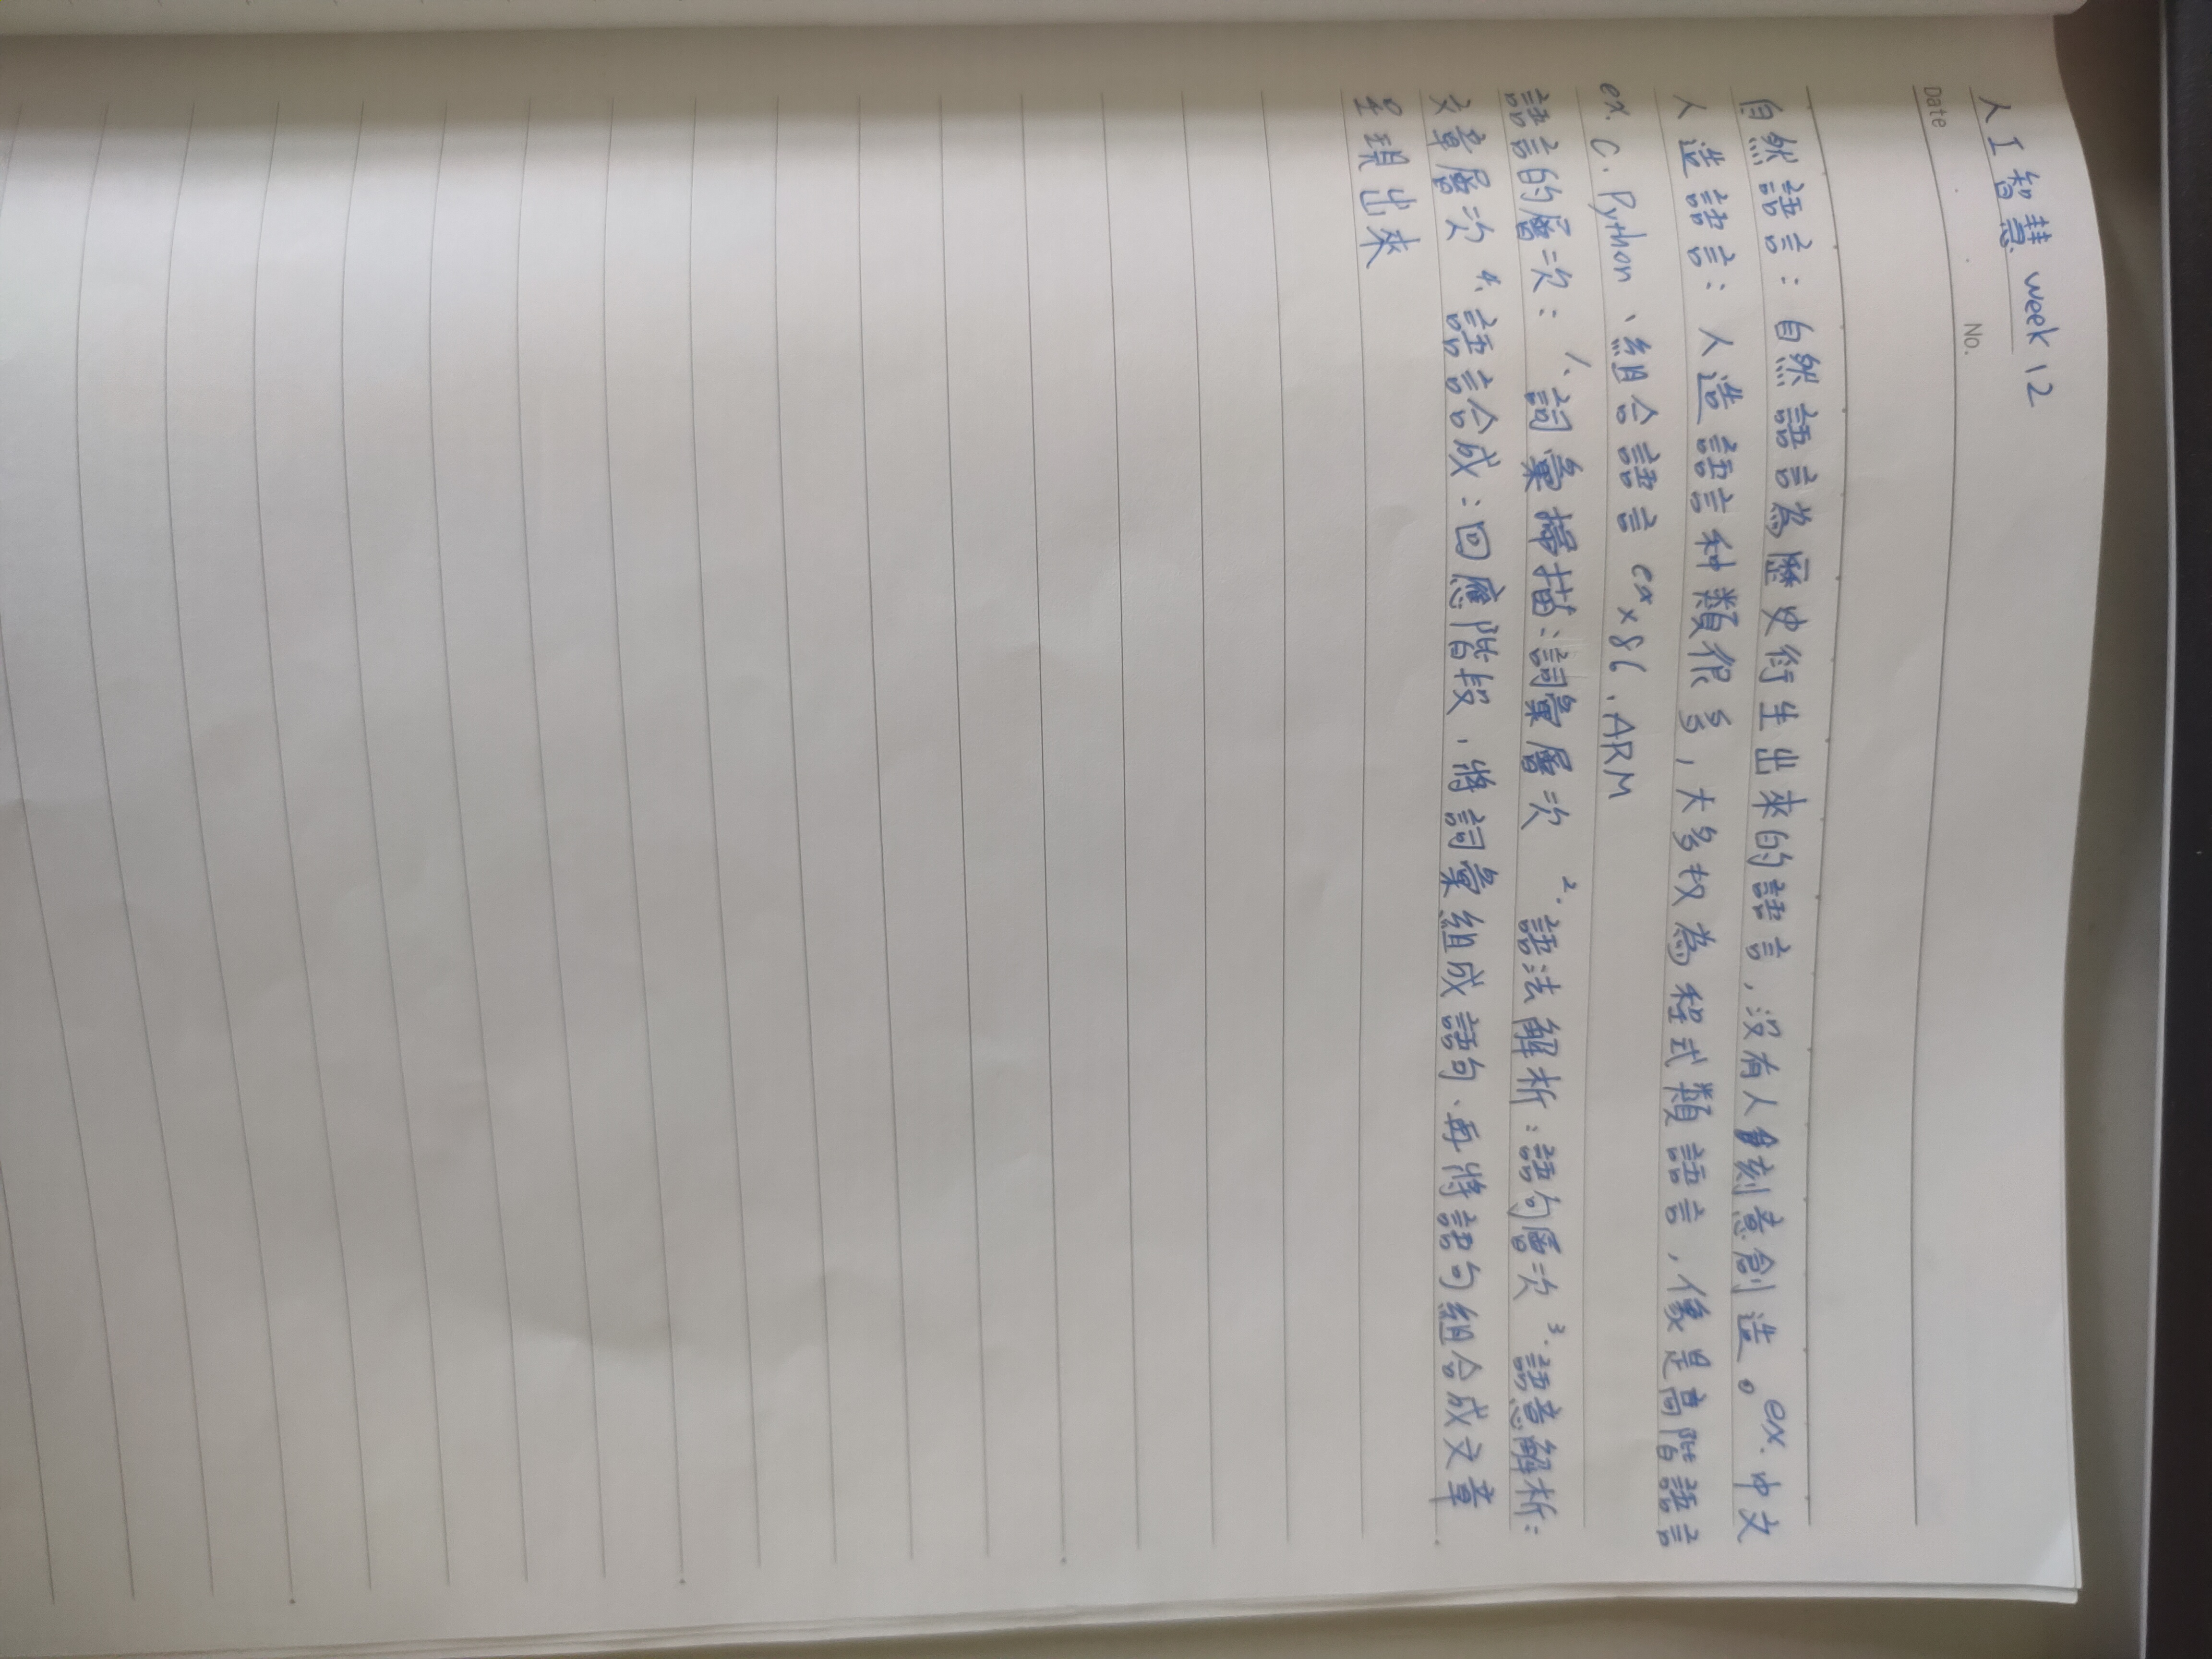 人工智慧 week 12
No.
Date
自然語言：自然語言為歷史衍生出來的語言，沒有人刻意創造。ex. 中文
人造語言：人造語言种類很多，大多权為程式類語言，像是高階語言
ex. C. Python、組合語言 ex x86、ARM
語言的層次：1. 詞彙掃描：詞彙層次 2. 語法解析：語句層次 3. 語意解析：
文章層次 4. 語言合成：回應階段，將詞彙組成語句、再將語句組合成文章
呈現出來